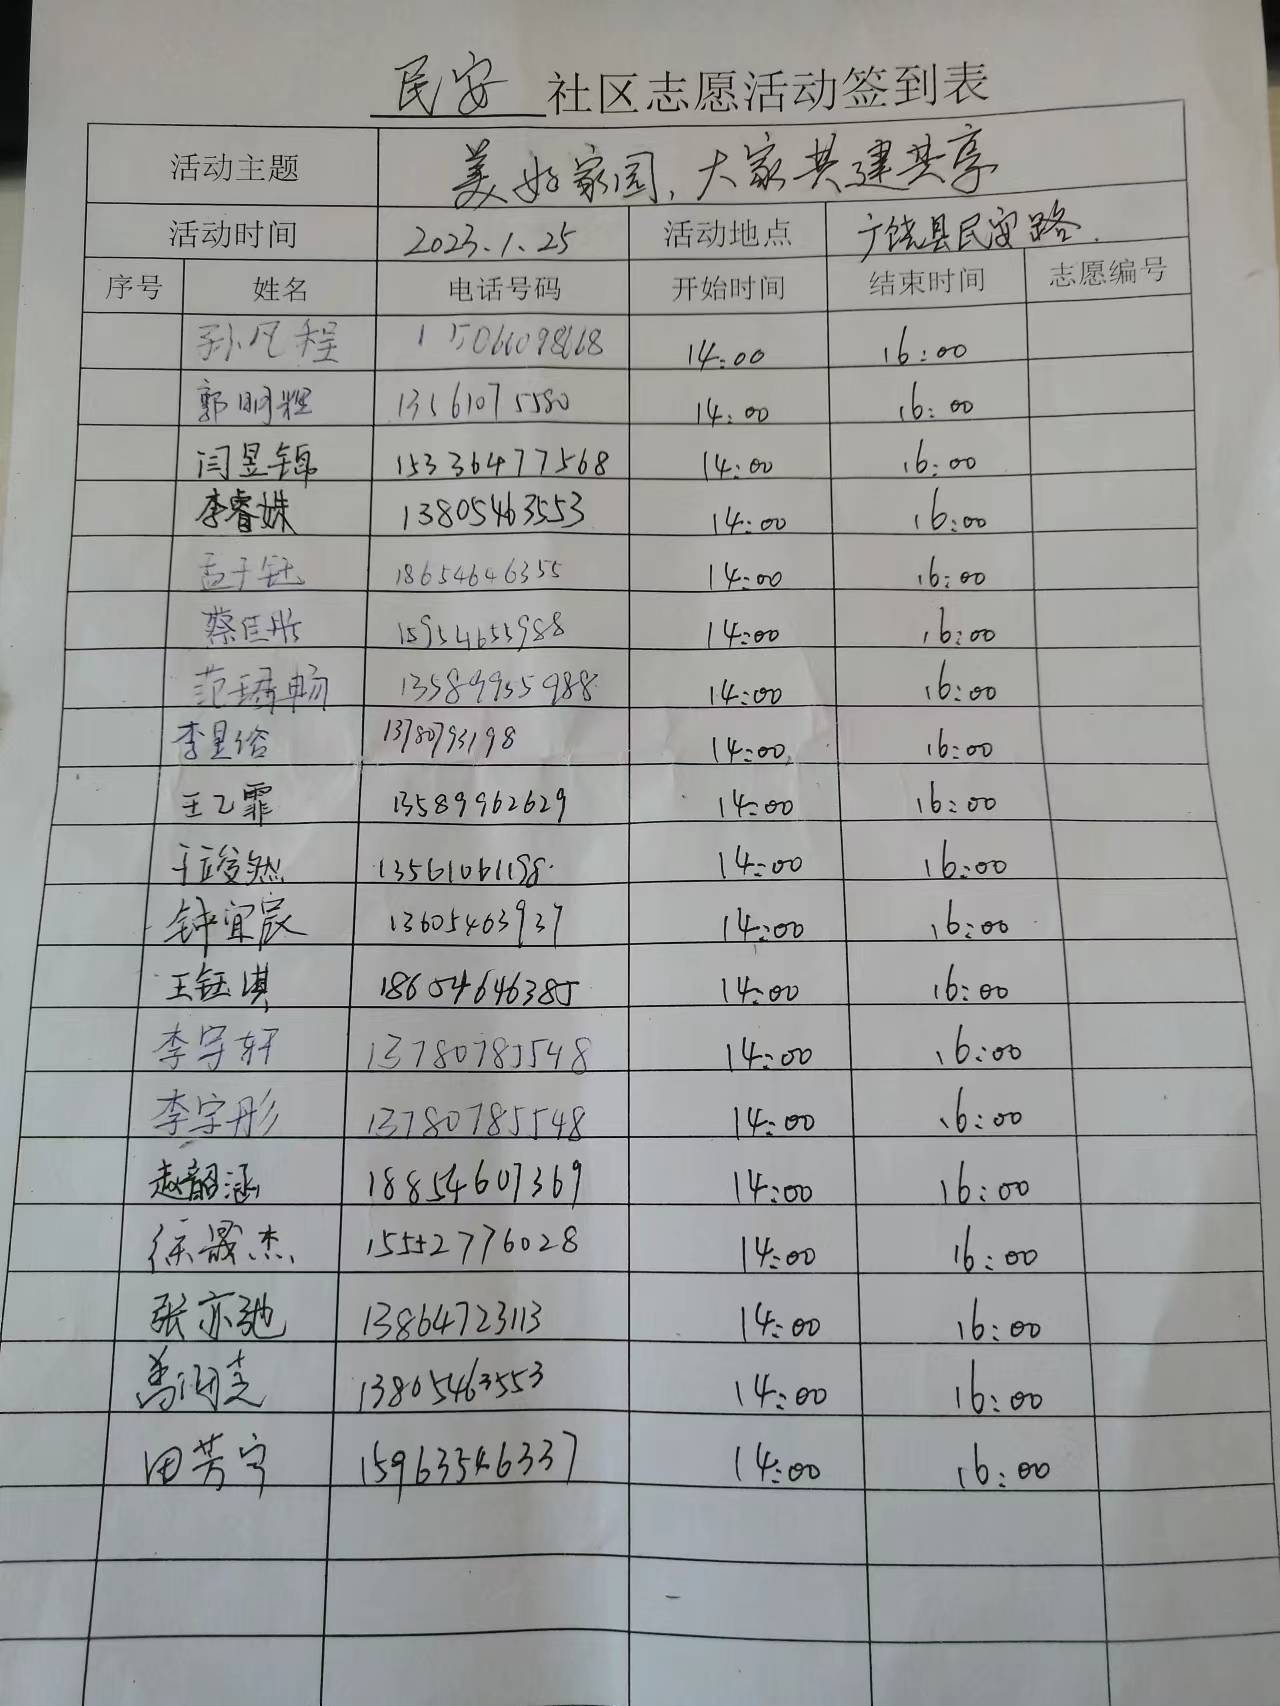 民安 社区志愿活动签到表
活动主题 美好家园，大家共建共享
活动时间 2023.1.25 活动地点 广饶县民安路.
序号 姓名 电话号码 开始时间 结束时间 志愿编号
孙凡程 15066098668 14:00 16:00
郭明程 13561075580 14:00 16:00
闫昱锦 15336477568 14:00 16:00
李睿姝 13805463553 14:00 16:00
孟于钰 18654646355 14:00 16:00
蔡佳彤 15954655988 14:00 16:00
范珺畅 13589955988 14:00 16:00
李昱俗 13780793198 14:00 16:00
王乙霏 13589962629 14:00 16:00
于竣然 13561061198 14:00 16:00
钟宜宸 13605463937 14:00 16:00
王钰淇 18654646385 14:00 16:00
李宇轩 13780785548 14:00 16:00
李宇彤 13780785548 14:00 16:00
赵韶涵 18854607369 14:00 16:00
徐晟杰 15552776028 14:00 16:00
张亦弛 13864723113 14:00 16:00
13805463553 14:00 16:00
田芳宁 15963546337 14:00 16:00